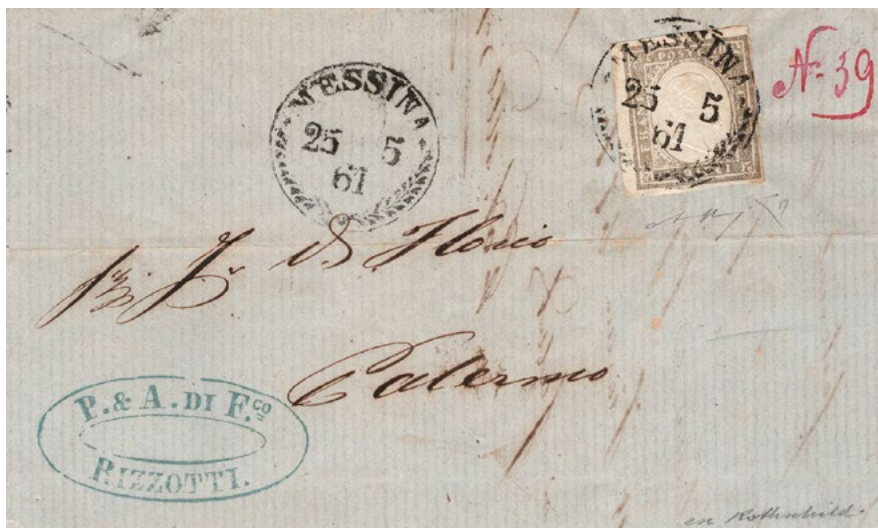 MESSINA
25 5
61
MESSINA
25 5
61
N. 39
I. & V. Florio
Palermo
P. & A. DI F.co
RIZZOTTI.
ex Rothschild.